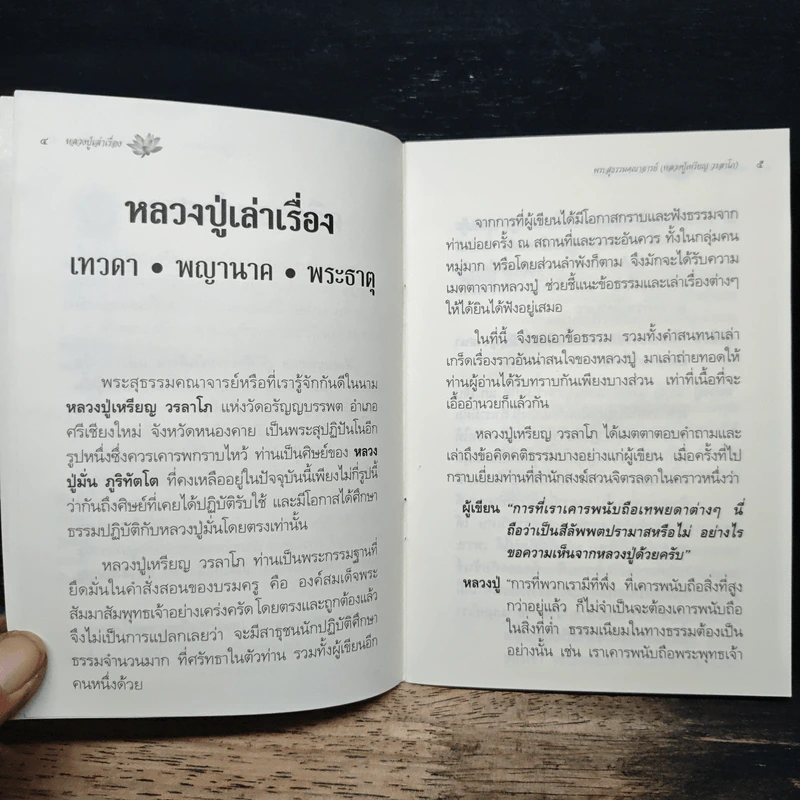 ๔ หลวงปู่เล่าเรื่อง
หลวงปู่เล่าเรื่อง
เทวดา • พญานาค • พระธาตุ
พระสุธรรมคณาจารย์หรือที่เรารู้จักกันดีในนาม
หลวงปู่เหรียญ วรลาโภ แห่งวัดอรัญญบรรพต อำเภอ
ศรีเชียงใหม่ จังหวัดหนองคาย เป็นพระสุปฏิปันโนอีก
รูปหนึ่งซึ่งควรเคารพกราบไหว้ ท่านเป็นศิษย์ของ หลวง
ปู่มั่น ภูริทัตโต ที่คงเหลืออยู่ในปัจจุบันนี้เพียงไม่กี่รูปนี้
ว่ากันถึงศิษย์ที่เคยได้ปฏิบัติรับใช้ และมีโอกาสได้ศึกษา
ธรรมปฏิบัติกับหลวงปู่มั่นโดยตรงเท่านั้น
หลวงปู่เหรียญ วรลาโภ ท่านเป็นพระกรรมฐานที่
ยึดมั่นในคำสั่งสอนของบรมครู คือ องค์สมเด็จพระ
สัมมาสัมพุทธเจ้าอย่างเคร่งครัดโดยตรงและถูกต้องแล้ว
จึงไม่เป็นการแปลกเลยว่า จะมีสาธุชนนักปฏิบัติศึกษา
ธรรมจำนวนมาก ที่ศรัทธาในตัวท่าน รวมทั้งผู้เขียนอีก
คนหนึ่งด้วย
พระสุธรรมคณาจารย์ (หลวงปู่เหรียญ วรลาโภ) ๕
จากการที่ผู้เขียนได้มีโอกาสกราบและฟังธรรมจาก
ท่านบ่อยครั้ง ณ สถานที่และวาระอันควร ทั้งในกลุ่มคน
หมู่มาก หรือโดยส่วนลำพังก็ตาม จึงมักจะได้รับความ
เมตตาจากหลวงปู่ ช่วยชี้แนะข้อธรรมและเล่าเรื่องต่างๆ
ให้ได้ยินได้ฟังอยู่เสมอ
ในที่นี้ จึงขอเอาข้อธรรม รวมทั้งคำสนทนาเล่า
เกร็ดเรื่องราวอันน่าสนใจของหลวงปู่ มาเล่าถ่ายทอดให้
ท่านผู้อ่านได้รับทราบกันเพียงบางส่วน เท่าที่เนื้อที่จะ
เอื้ออำนวยก็แล้วกัน
หลวงปู่เหรียญ วรลาโภ ได้เมตตาตอบคำถามและ
เล่าถึงข้อคิดคติธรรมบางอย่างแก่ผู้เขียน เมื่อครั้งที่ไป
กราบเยี่ยมท่านที่สำนักสงฆ์สวนจิตรลดาในคราวหนึ่งว่า
ผู้เขียน "การที่เราเคารพนับถือเทพยดาต่างๆ นี่
ถือว่าเป็นสีลัพพตปรามาสหรือไม่ อย่างไร
ขอความเห็นจากหลวงปู่ด้วยครับ"
หลวงปู่ "การที่พวกเรามีที่พึ่ง ที่เคารพนับถือสิ่งที่สูง
กว่าอยู่แล้ว ก็ไม่จำเป็นจะต้องเคารพนับถือ
ในสิ่งที่ต่ำ ธรรมเนียมในทางธรรมต้องเป็น
อย่างนั้น เช่น เราเคารพนับถือพระพุทธเจ้า